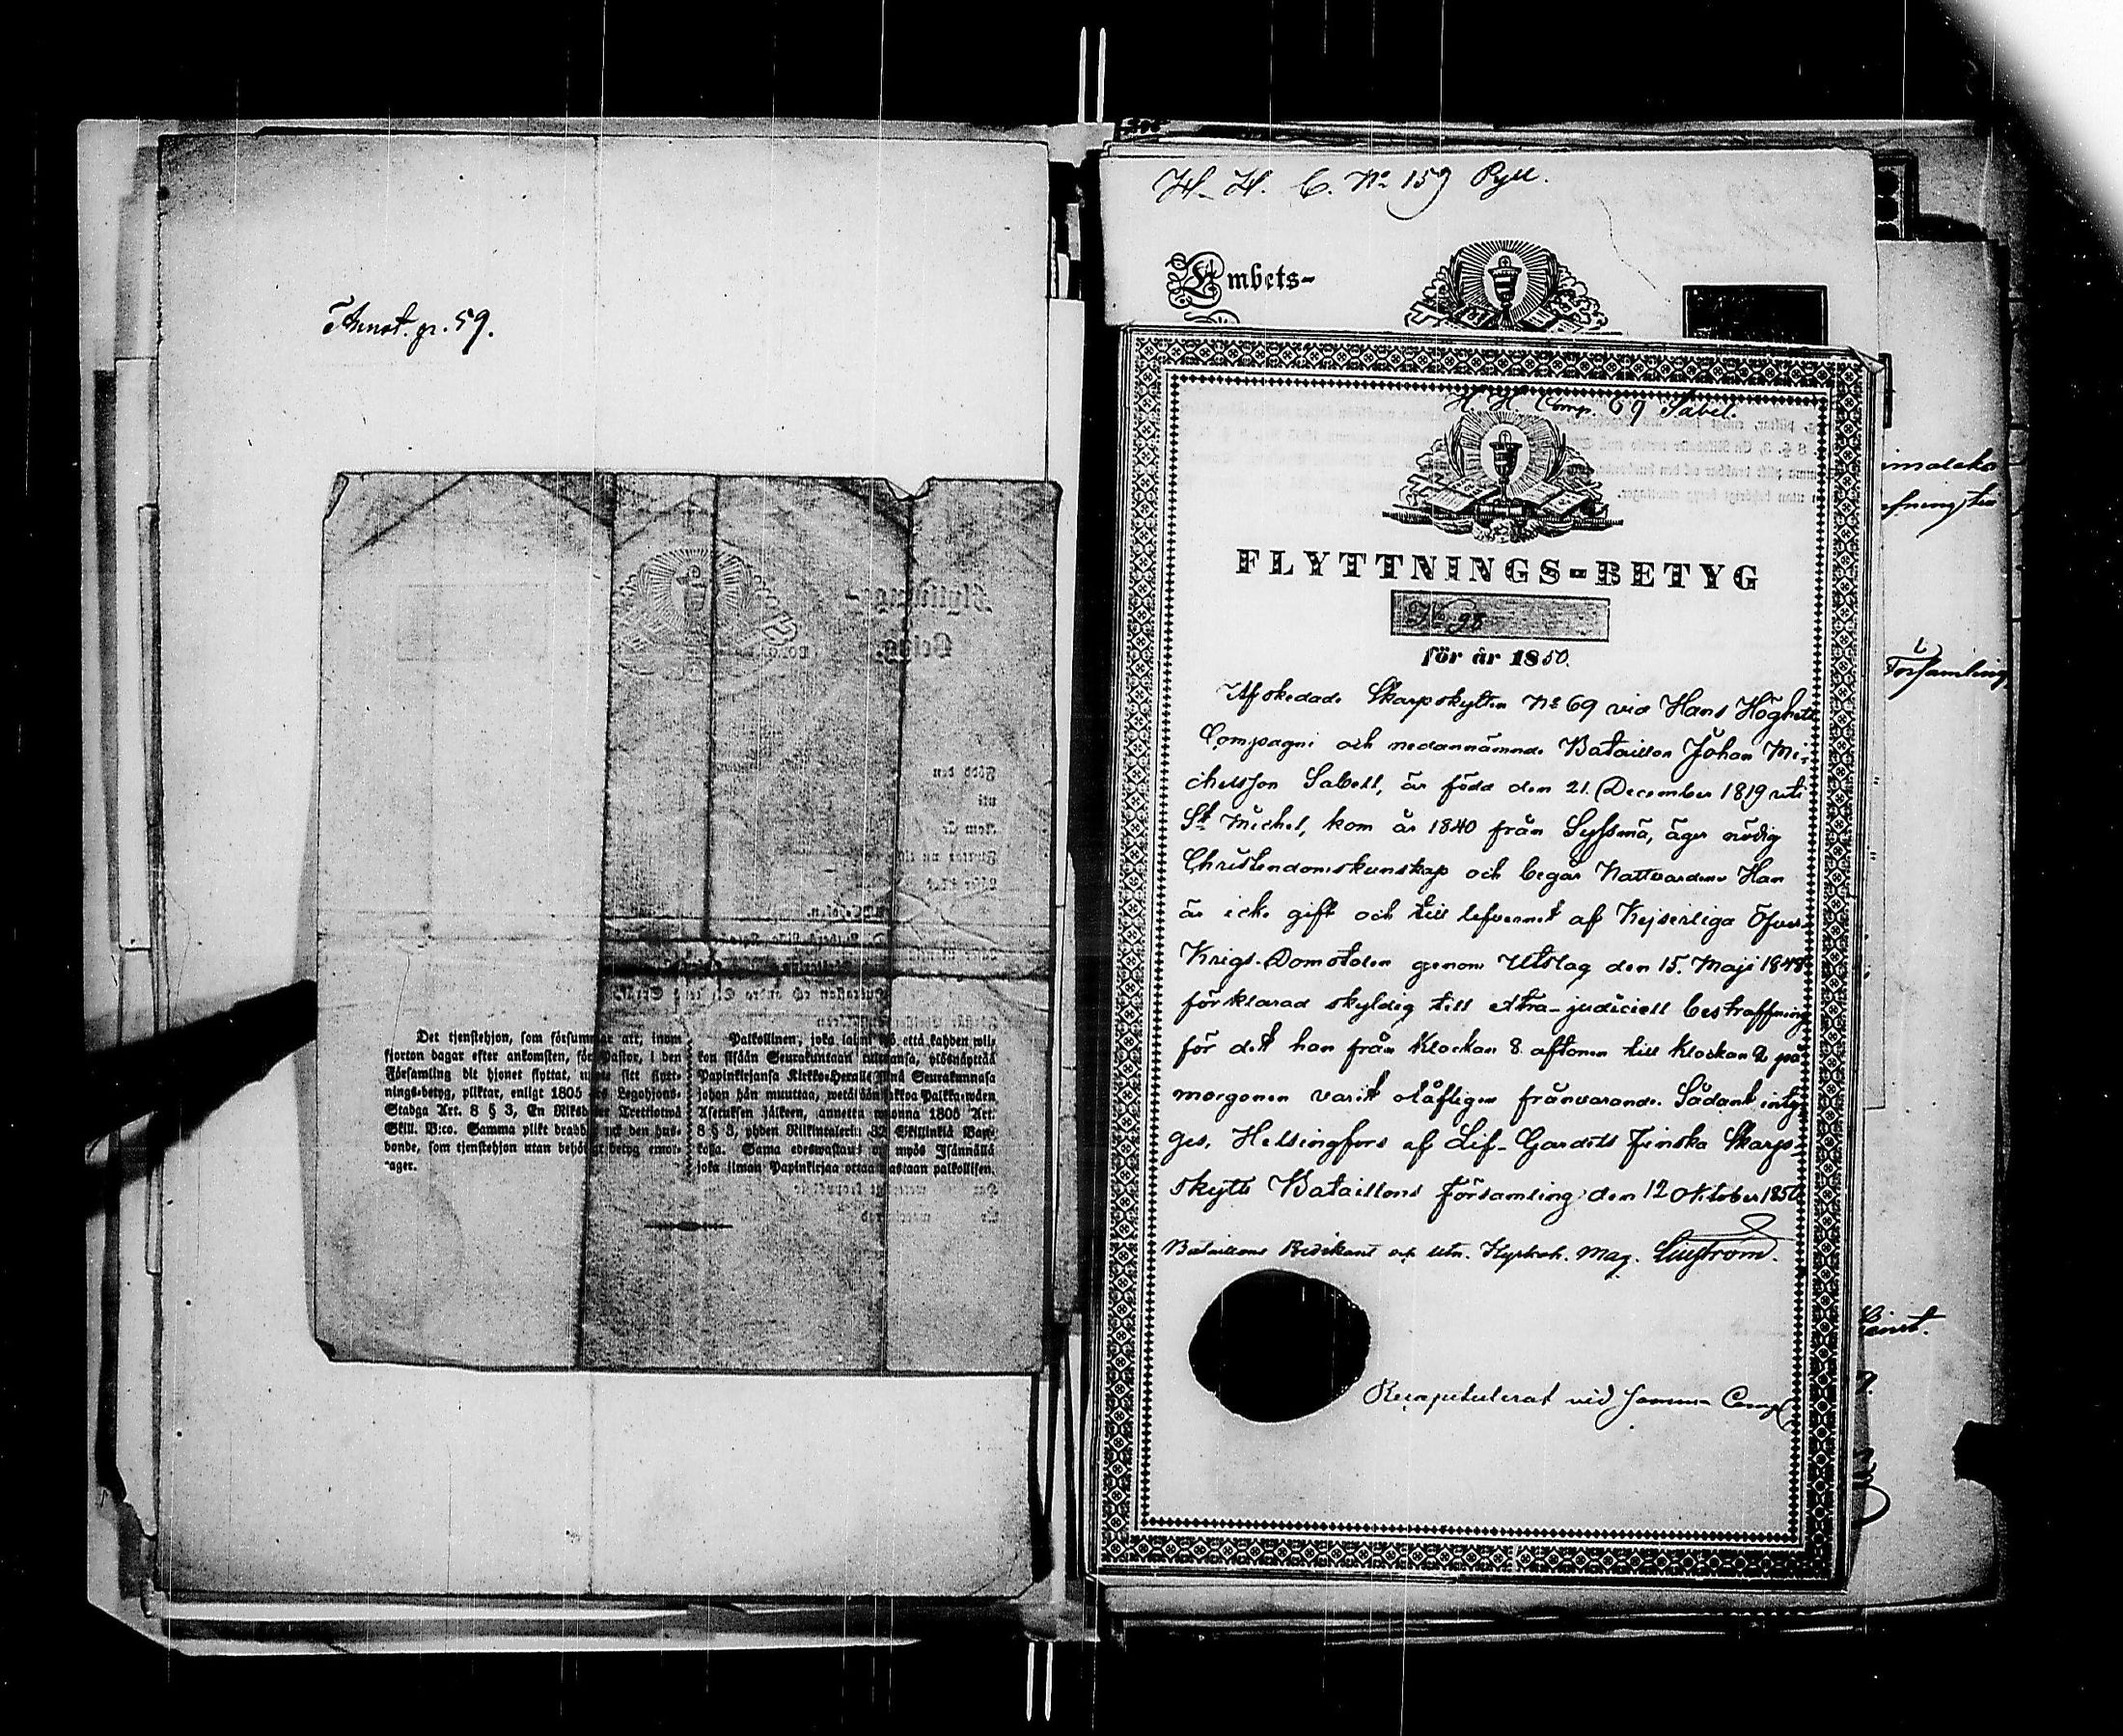 Annot. gr. 59.
Det tjenstehjon, som försummar att, inom
fjorton dagar efter ankomsten, för Pastor, i den
Församling dit hjonet flyttat, uppte sitt flytt-
nings-betyg, pliktar, enligt 1805 års Legohjons-
Stadga Art. 8 § 3, En Riksdaler Trettiotwå
Skill. B:co. Samma plikt drabbe ock den hus-
bonde, som tjenstehjon utan behörigt betyg emot-
tager.
Palkollinen, joka laimi lyö että kahden wii-
kon sisään Seurakuntaan tultuansa, ylösnäyttää
Papinkirjansa Kirkko-Herralle siinä Seurakunnasa
johon hän muuttaa, wetäköön sakkoa Palkka-wäen
Asetuksen jälkeen, annettu wuonna 1805 Art.
8 § 3, yhden Riikintalerin 32 Skillinkiä Pan-
kossa. Sama edeswastaus on myös Isännällä
joka ilman Papinkirjaa ottaa wastaan palkollisen.
H. H. C. No 159 Pyll.
Embets-
H. H. Comp. 69 Sabel.
FLYTTNINGS-BETYG
No 98
för år 1850.
Afskedade Skarpskytten No 69 vid Hans Höghets
Compagni och nedannämnde Bataillon Johan Mi-
chelsson Sabell, är född den 21 December 1819 uti
St Michel, kom år 1840 från Sysmä, äger nödig
Christendomskunskap och begår Nattvarden. Han
är icke gift och till lefvernet af Kejserliga Öfver-
Krigs-Domstolen genom Utslag den 15. Maji 1848
förklarad skyldig till extra-judiciell bestraffning
för det han från klockan 8 aftonen till klockan 2 på
morgonen varit olofligen frånvarande. Sådant inty-
gas, Helsingfors af Lif-Gardets Finska Skarp-
skytte Bataillons Församling den 12 Oktober 1850
Bataillons Predikant och Utn. Kyrkoh. Mag. Liustrom.
Recapitulerat vid samma Comp.
Församling